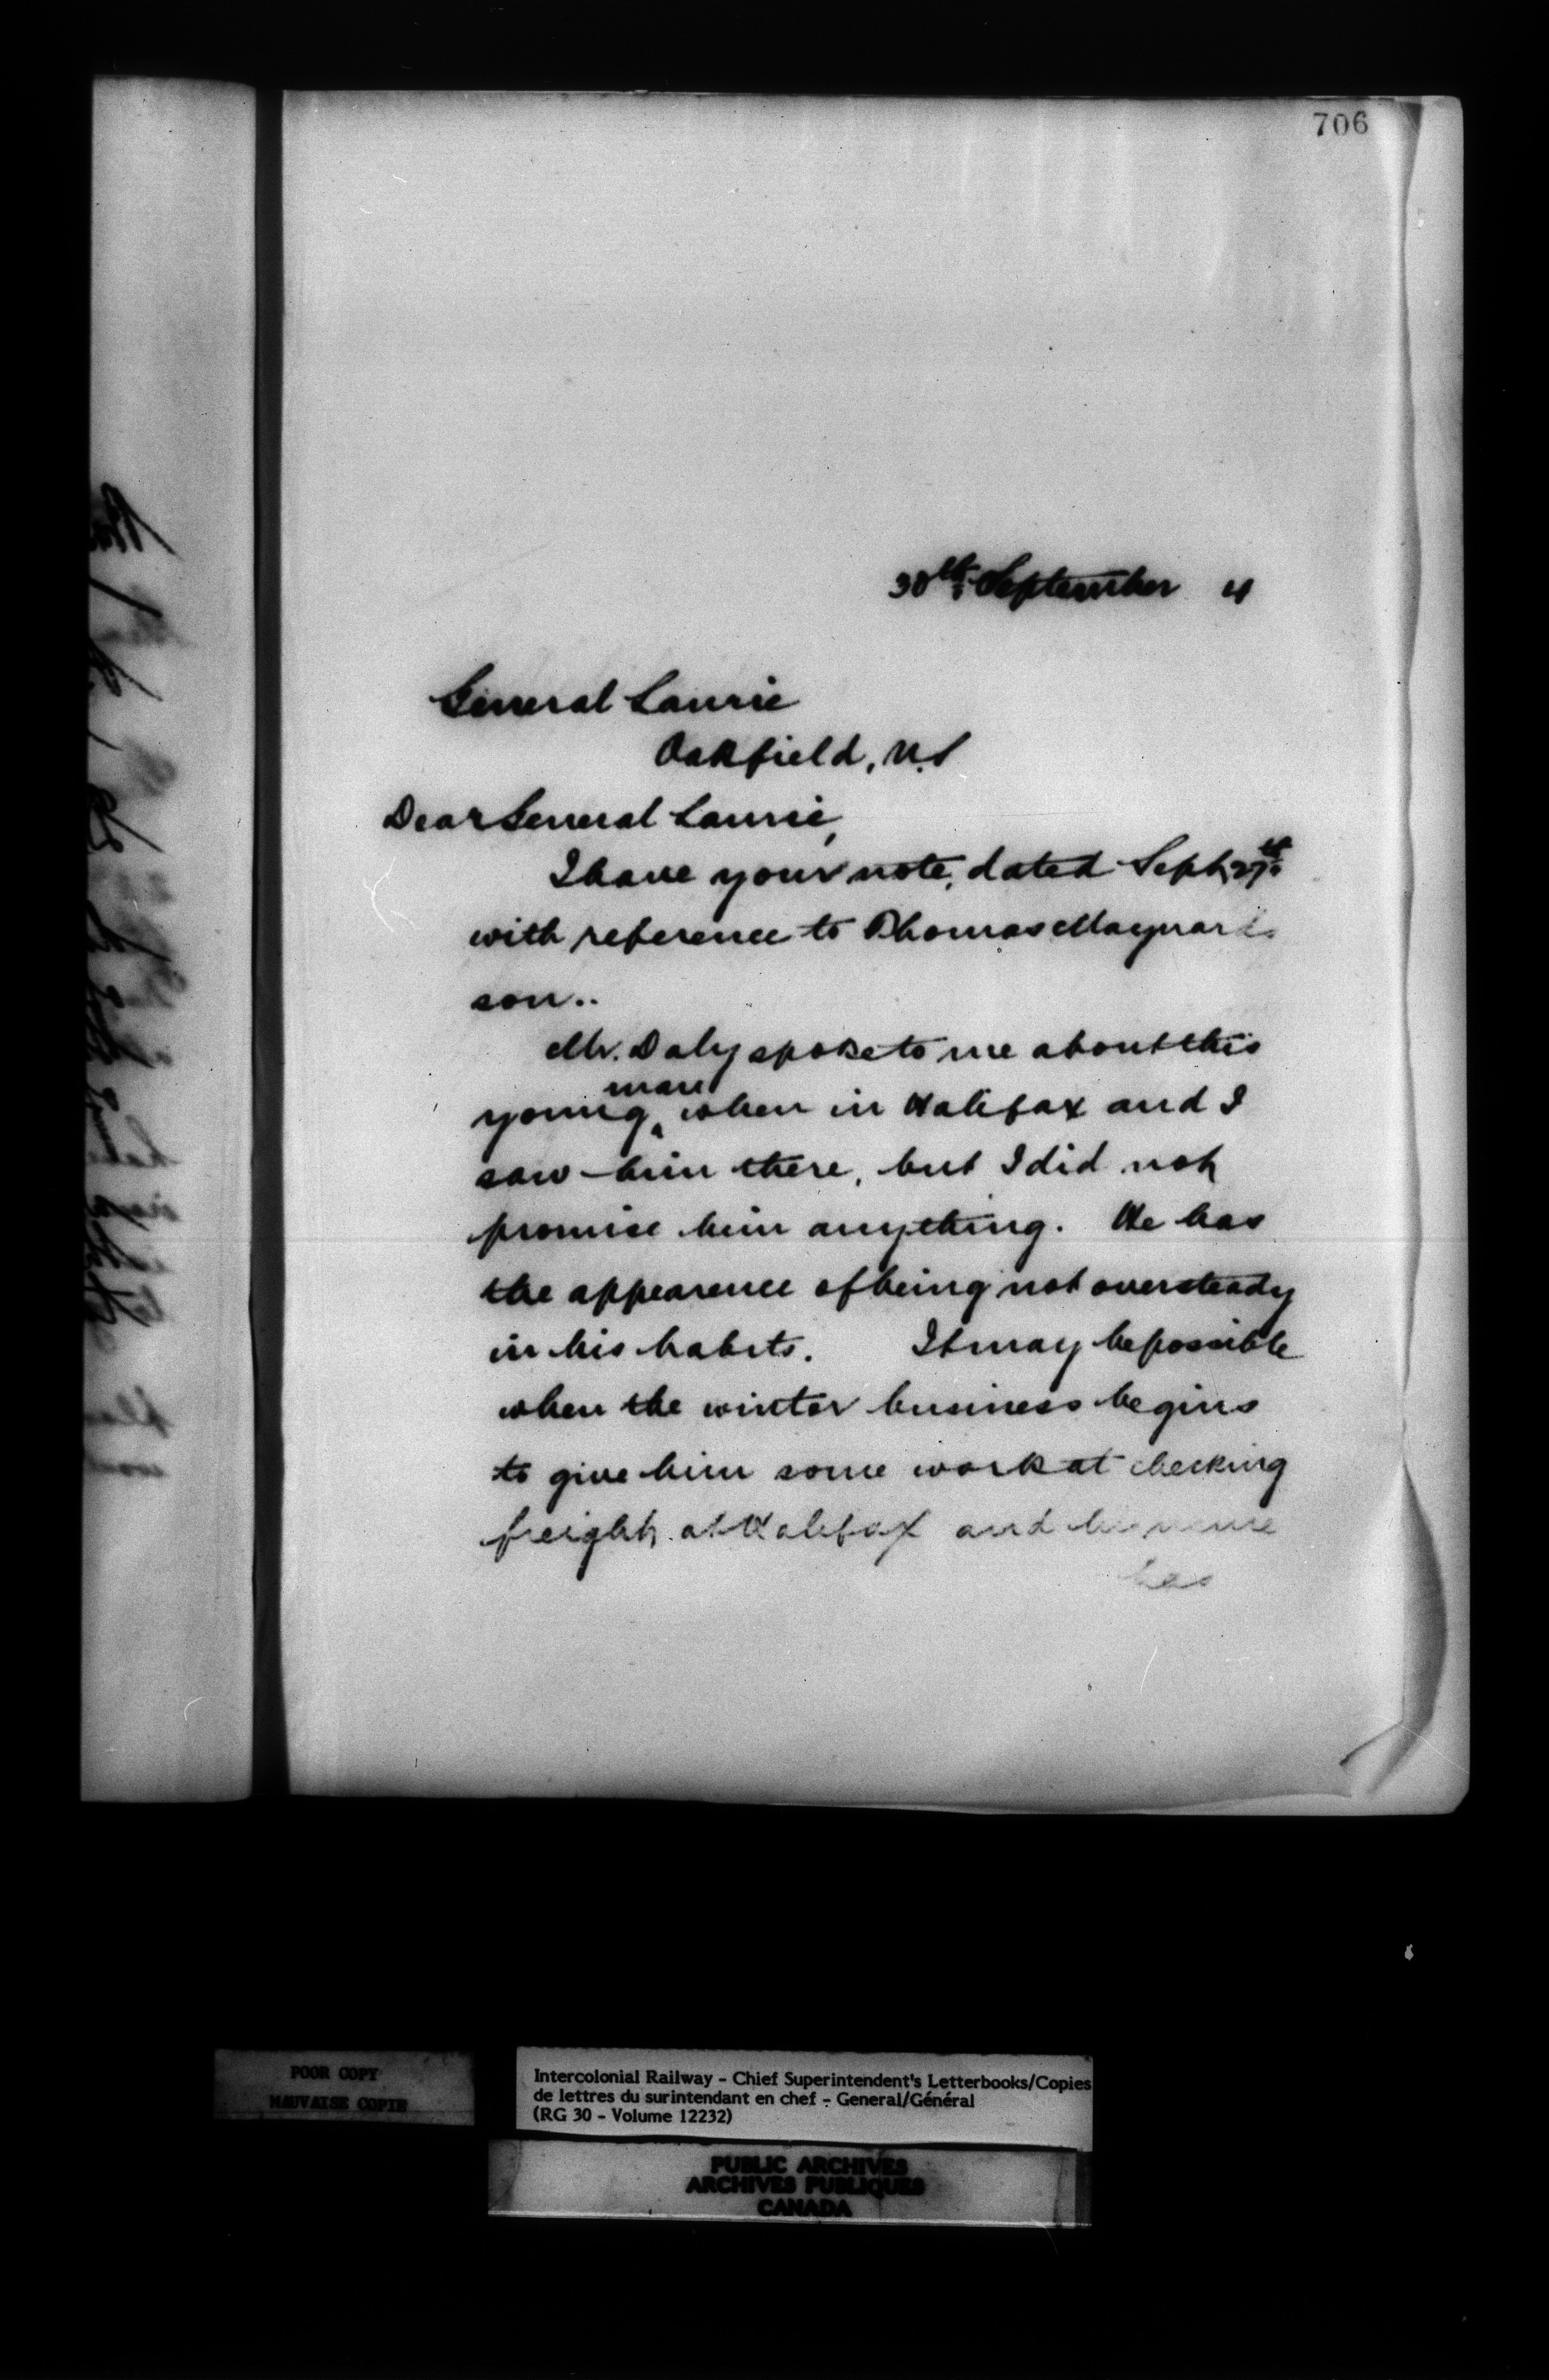 706
30th September 4
General Laurie
Oakfield, N.S
Dear General Laurie,
I have your note, dated Sept, 27th
with reference to Thomas Maynards
son..
Mr. Daly spoke to me about this
young man when in Halifax and I
saw him there, but I did not
promise him anything. He has
the appearence of being not oversteady
in his habits. It may be possible
when the winter business begins
to give him some work at checking
freight at Halifax and his name
has
POOR COPY
MAUVAISE COPIE
Intercolonial Railway - Chief Superintendent's Letterbooks/Copies
de lettres du surintendant en chef - General/Général
(RG 30 - Volume 12232)
PUBLIC ARCHIVES
ARCHIVES PUBLIQUES
CANADA